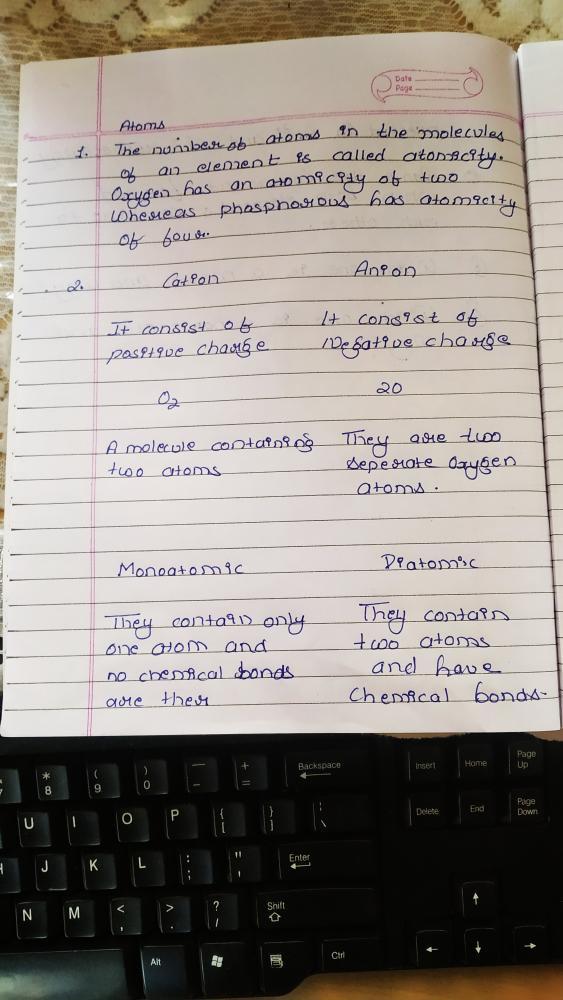 Date
Page
Atoms
1. The number of atoms in the molecules
of an element is called atomicity.
Oxygen has an atomicity of two
whereas phosphorous has atomicity
of four.
2. Cation Anion
It consist of It consist of
positive charge Negative charge
O₂ 20
A molecule containing They are two
two atoms seperate Oxygen
atoms.
Monoatomic Diatomic
They contain only They contain
one atom and two atoms
no chemical bonds and have
are ther chemical bonds.
* 8 ( 9 ) 0 — - + = Backspace Insert Home Page Up
U I O P { [ } ] | \ Delete End Page Down
J K L : ; " ' Enter
N M < , > . ? / Shift
Alt Ctrl